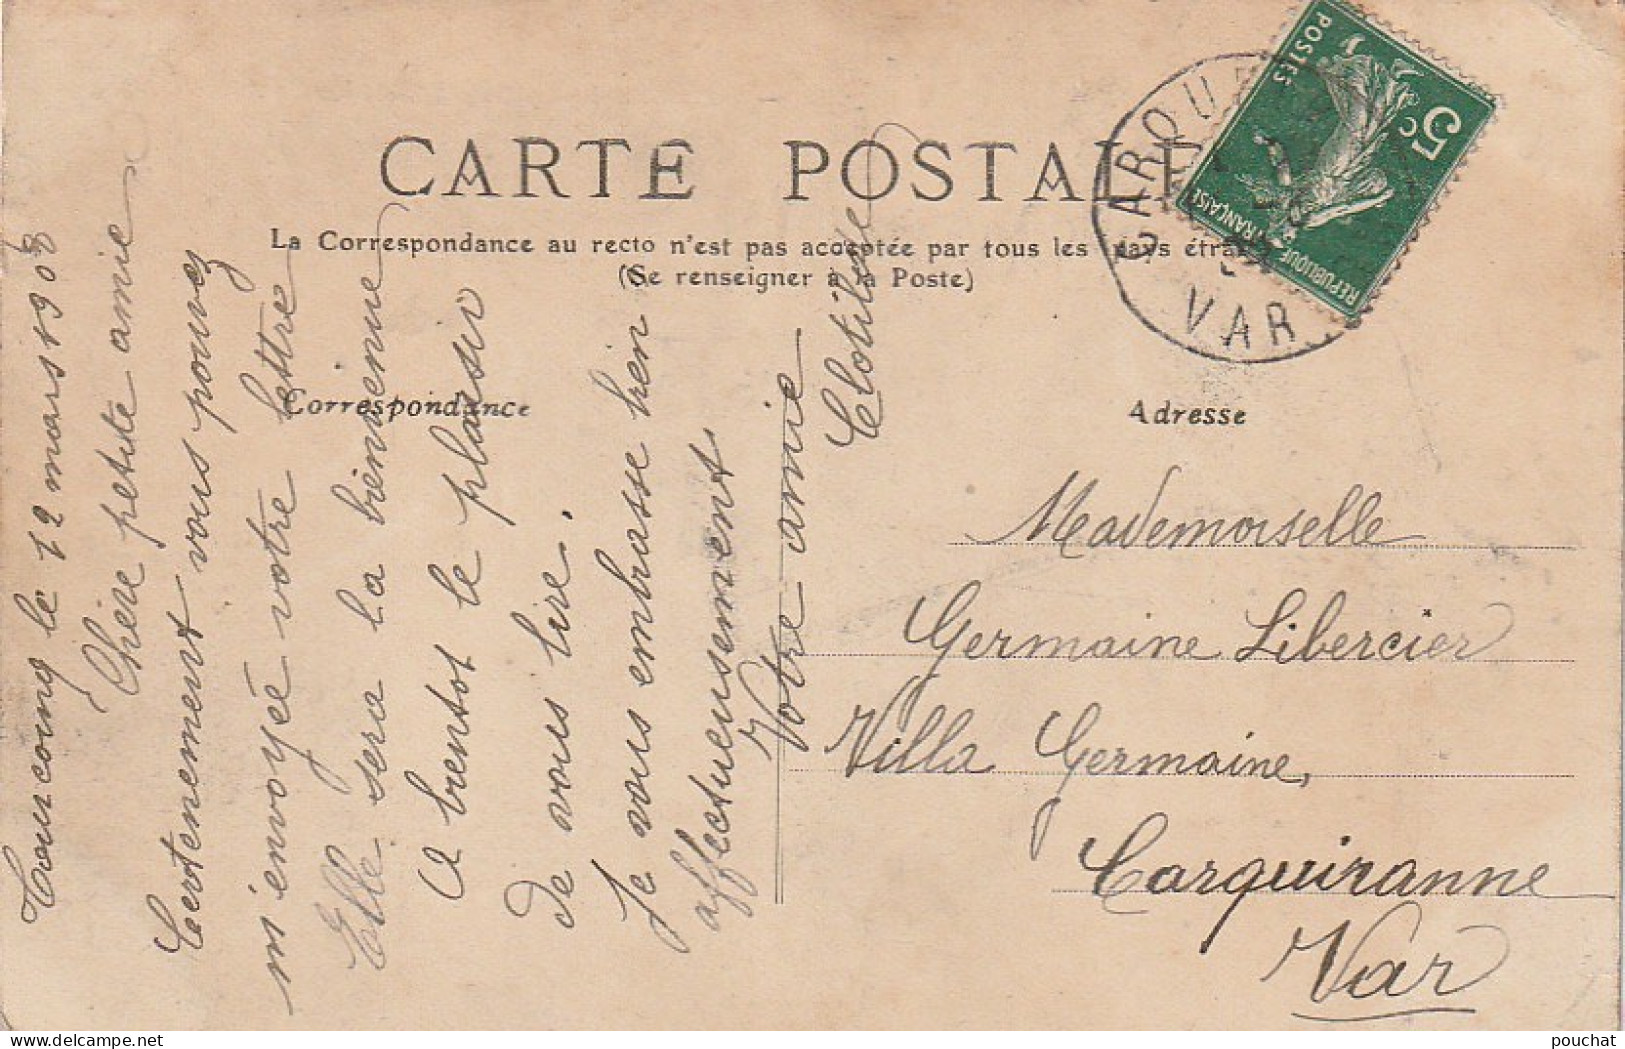 CARTE POSTALE
La Correspondance au recto n'est pas acceptée par tous les pays étra
(Se renseigner à la Poste)
Correspondance
Adresse
Tourcoing le 12 mars 1908
Chère petite amie
Certenement vous pouvez
m'envoyée votre lettre
Elle sera la bienvenue
A bientot le plaisir
de vous lire.
Je vous embrasse bien
affectueusement
Votre amie
Clotilde
Mademoiselle
Germaine Libercier
Villa Germaine,
Carqueiranne
Var
POSTES
5c
REPUBLIQUE FRANÇAISE
CARQUE
VAR
pouchat